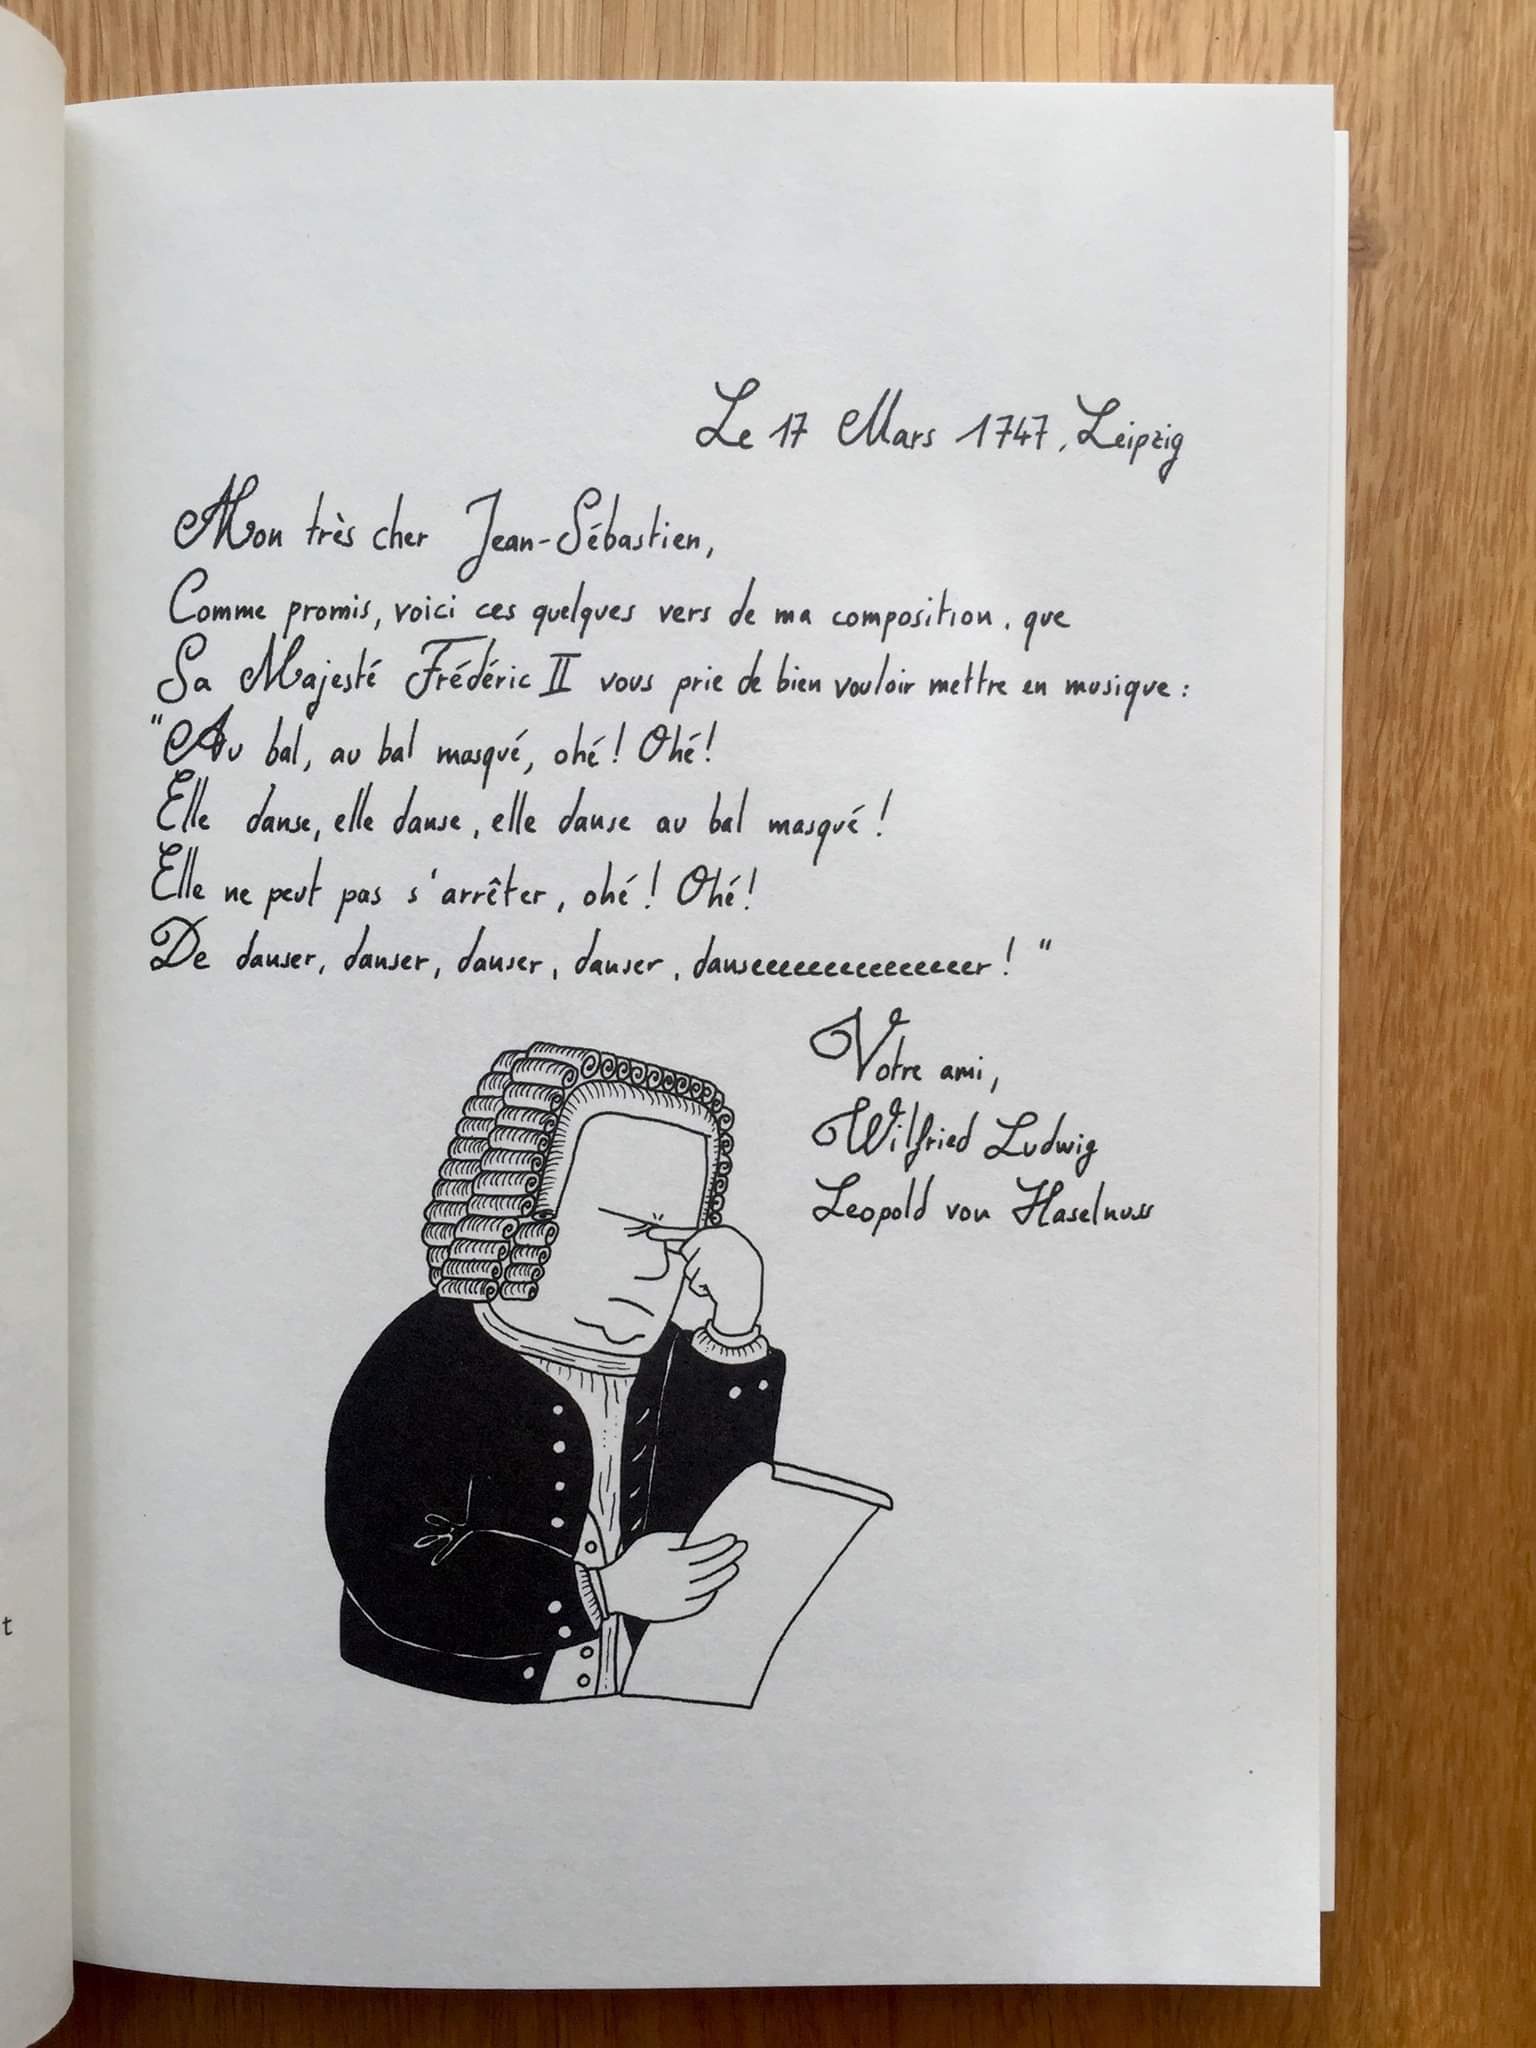 Le 17 Mars 1747, Leipzig
Mon très cher Jean-Sébastien,
Comme promis, voici ces quelques vers de ma composition, que
Sa Majesté Frédéric II vous prie de bien vouloir mettre en musique :
"Au bal, au bal masqué, ohé ! Ohé !
Elle danse, elle danse, elle danse au bal masqué !
Elle ne peut pas s'arrêter, ohé ! Ohé !
De danser, danser, danser, danser, danseeeeeeeeeeeeeeer ! "
Votre ami,
Wilfried Ludwig
Leopold von Haselnuss
t